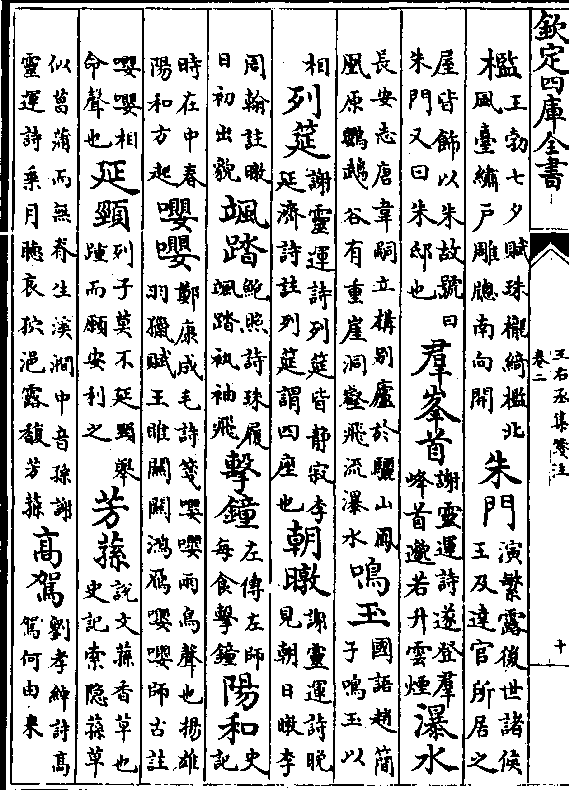 欽定四庫全書
王右丞集箋注
卷二
十
檻王勃七夕賦珠櫳綺檻北風臺繡戶雕牕南向開朱門演繁露後世諸侯王及達官所居之
屋皆飾以朱故號曰朱門又曰朱邸也羣峯首謝靈運詩遂登羣峰首邈若升雲煙瀑水
長安志唐韋嗣立構别廬於驪山鳳凰原鸚鵡谷有重崖洞壑飛流瀑水鳴玉國語趙簡子鳴玉以
相列筵謝靈運詩列筵皆静寂李延濟詩註列筵謂四座也朝暾謝靈運詩晚見朝日暾李
周翰註暾日初出貌颯踏鮑照詩珠履颯踏紈袖飛擊鐘左傳左師每食擊鐘陽和史記
時在中春陽和方起嚶嚶鄭康成毛詩箋嚶嚶兩鳥聲也揚雄羽獵賦王雎關關鴻鴈嚶嚶師古註
嚶嚶相命聲也延頸列子莫不延頸舉踵而願安利之芳蓀說文蓀香草也史記索隐蓀草
似菖蒲而無脊生溪澗中音孫謝靈運詩乘月聽哀狖浥露馥芳蓀髙駕劉孝綽詩髙駕何由來